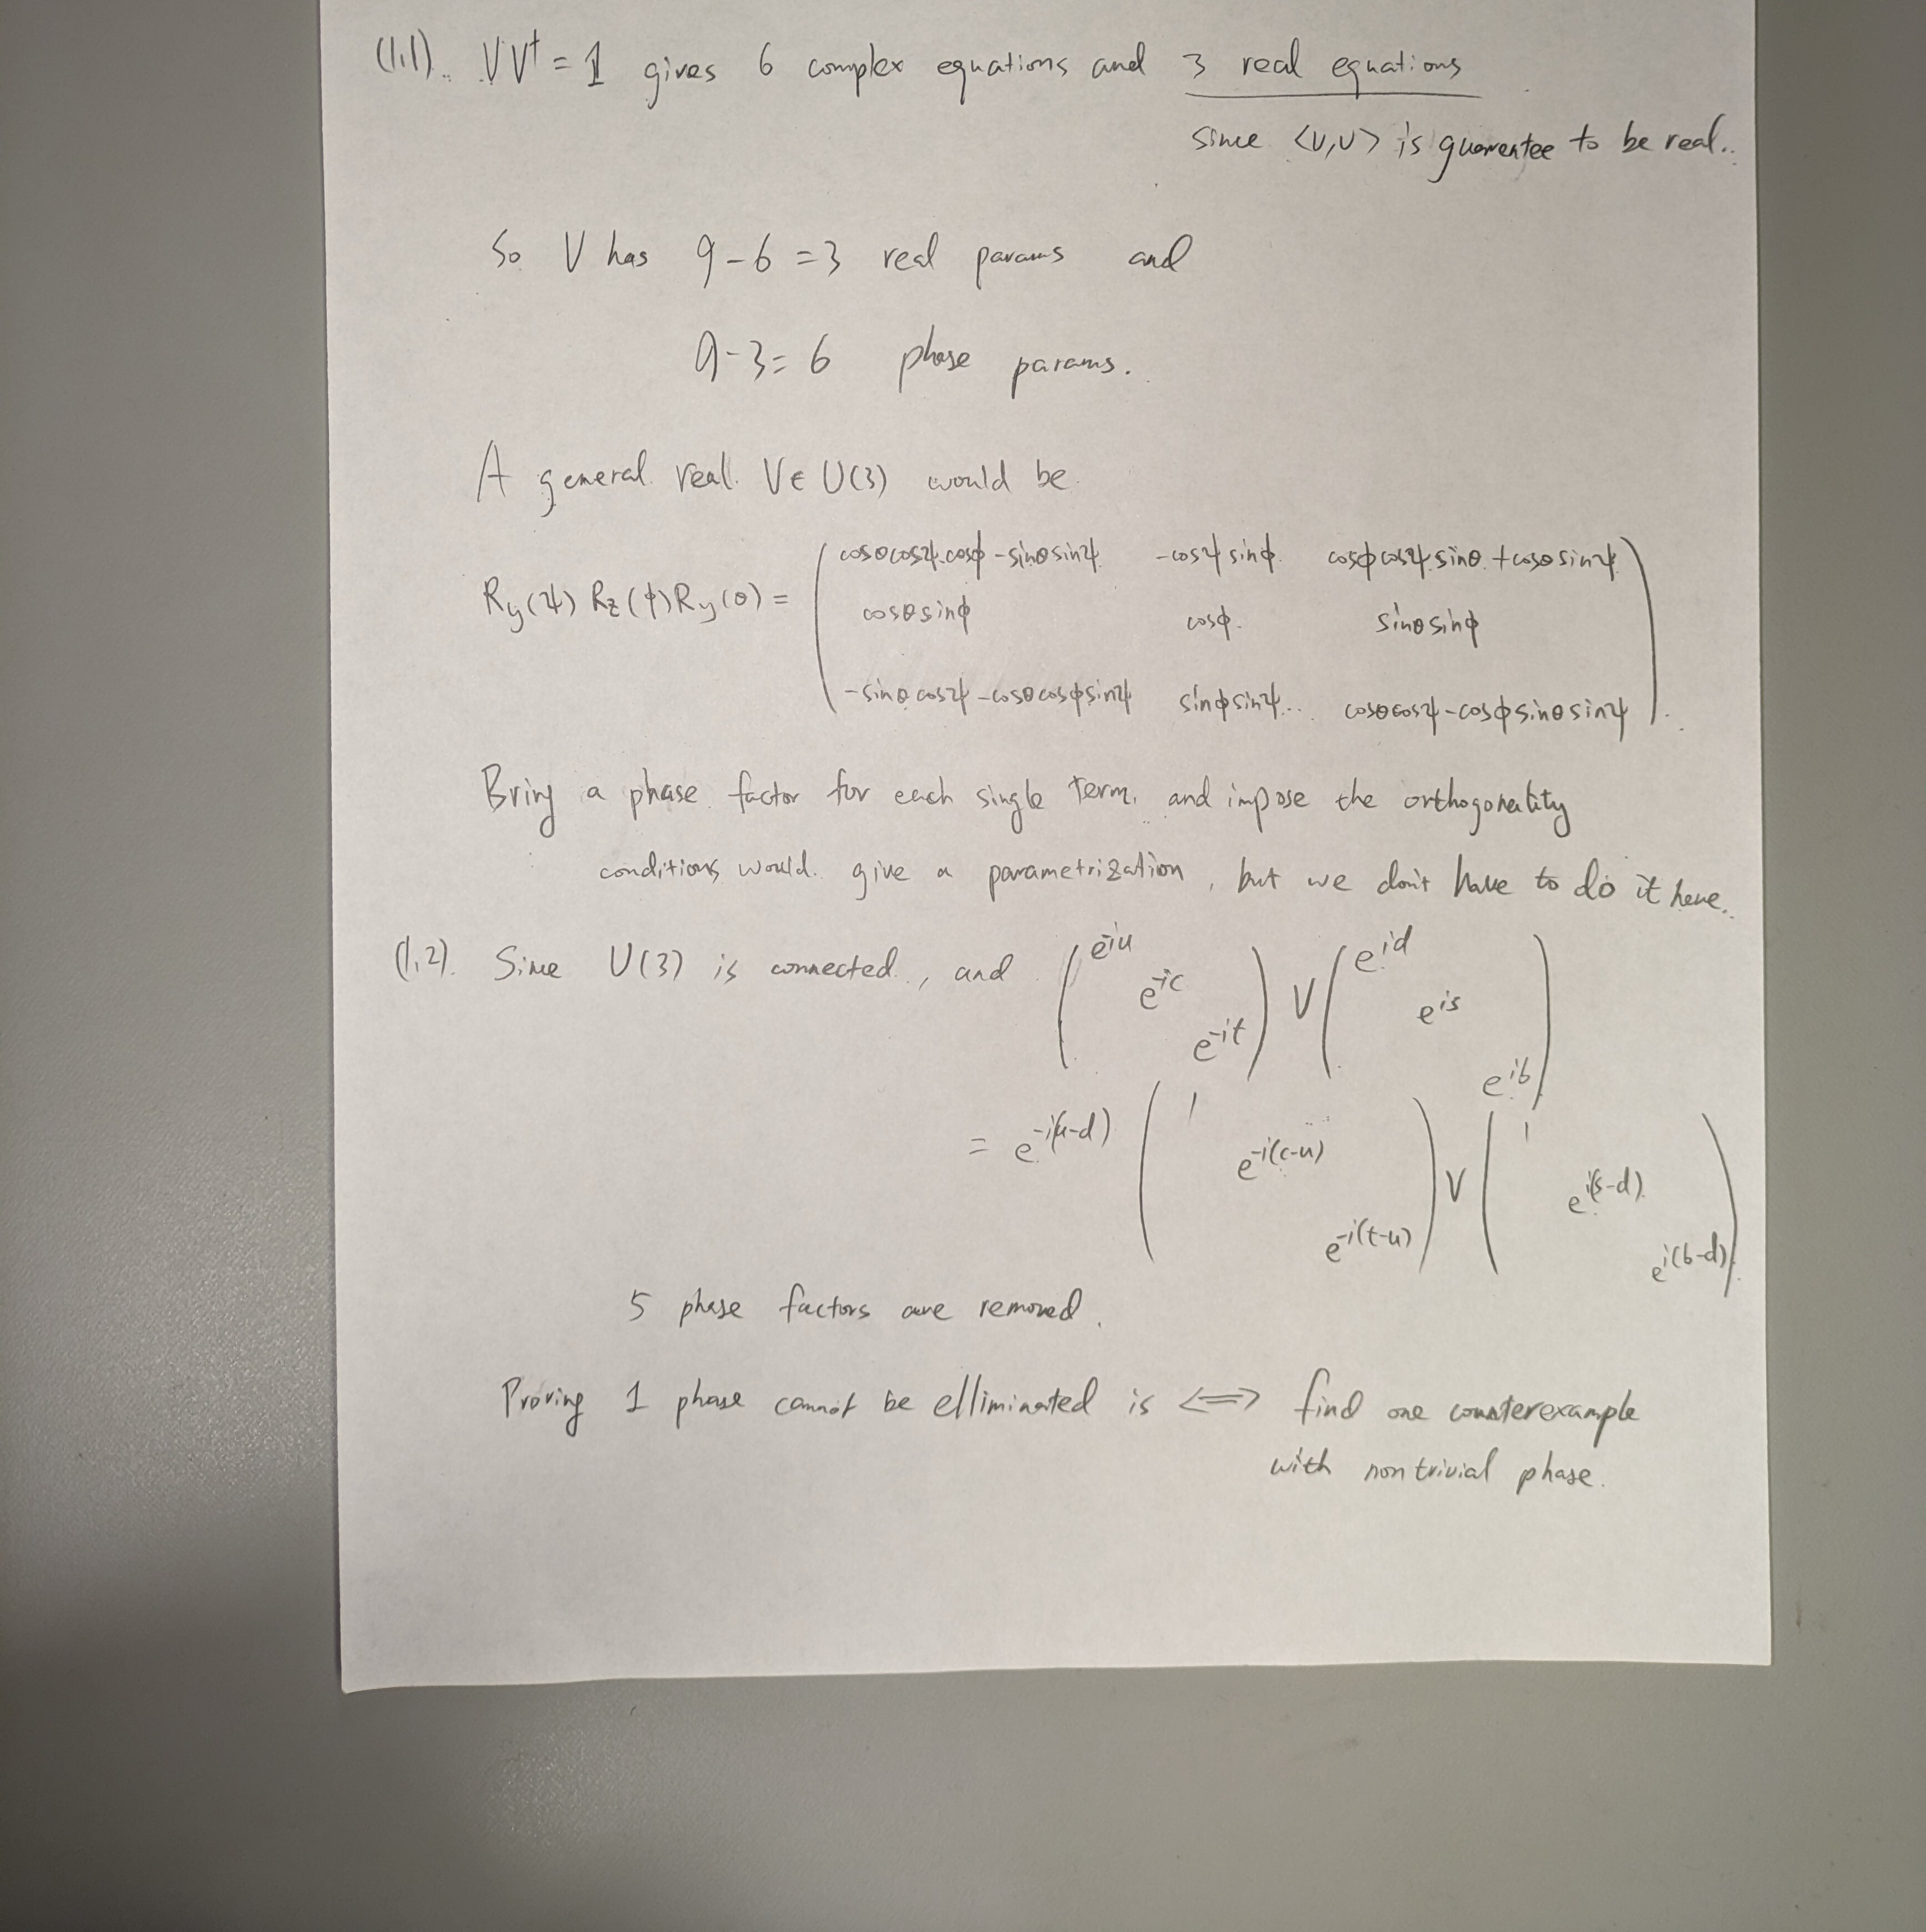 (1,1). VV† = 1 gives 6 complex equations and 3 real equations
since <v,v> is guarentee to be real..
So V has 9-6=3 real params and
9-3=6 phase params.
A general real V∈U(3) would be
R_y(ψ) R_z(φ) R_y(θ) = ( cosθcosψ.cosφ-sinθsinψ -cosψsinφ. cosφcosψ.sinθ.+cosθsinψ
cosθsinφ cosφ. sinθsinφ
-sinθcosψ-cosθcosφsinψ sinφsinψ... cosθcosψ-cosφsinθsinψ ).
Bring a phase factor for each single term, and impose the orthogonality
conditions would. give a parametrization, but we don't have to do it here.
(1,2). Since U(3) is connected., and ( e^{-iu} e^{-ic} e^{-it} ) V ( e^{id} e^{is} e^{ib} )
= e^{-i(u-d)} ( 1 e^{-i(c-u)} e^{-i(t-u)} ) V ( 1 e^{i(s-d)} e^{i(b-d)} )
5 phase factors are removed.
Proving 1 phase cannot be elliminated is <=> find one counterexample
with nontrivial phase.